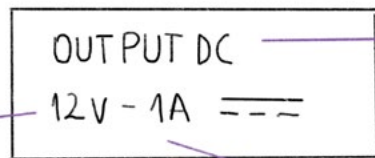 OUTPUT DC
12V - 1A ⎓